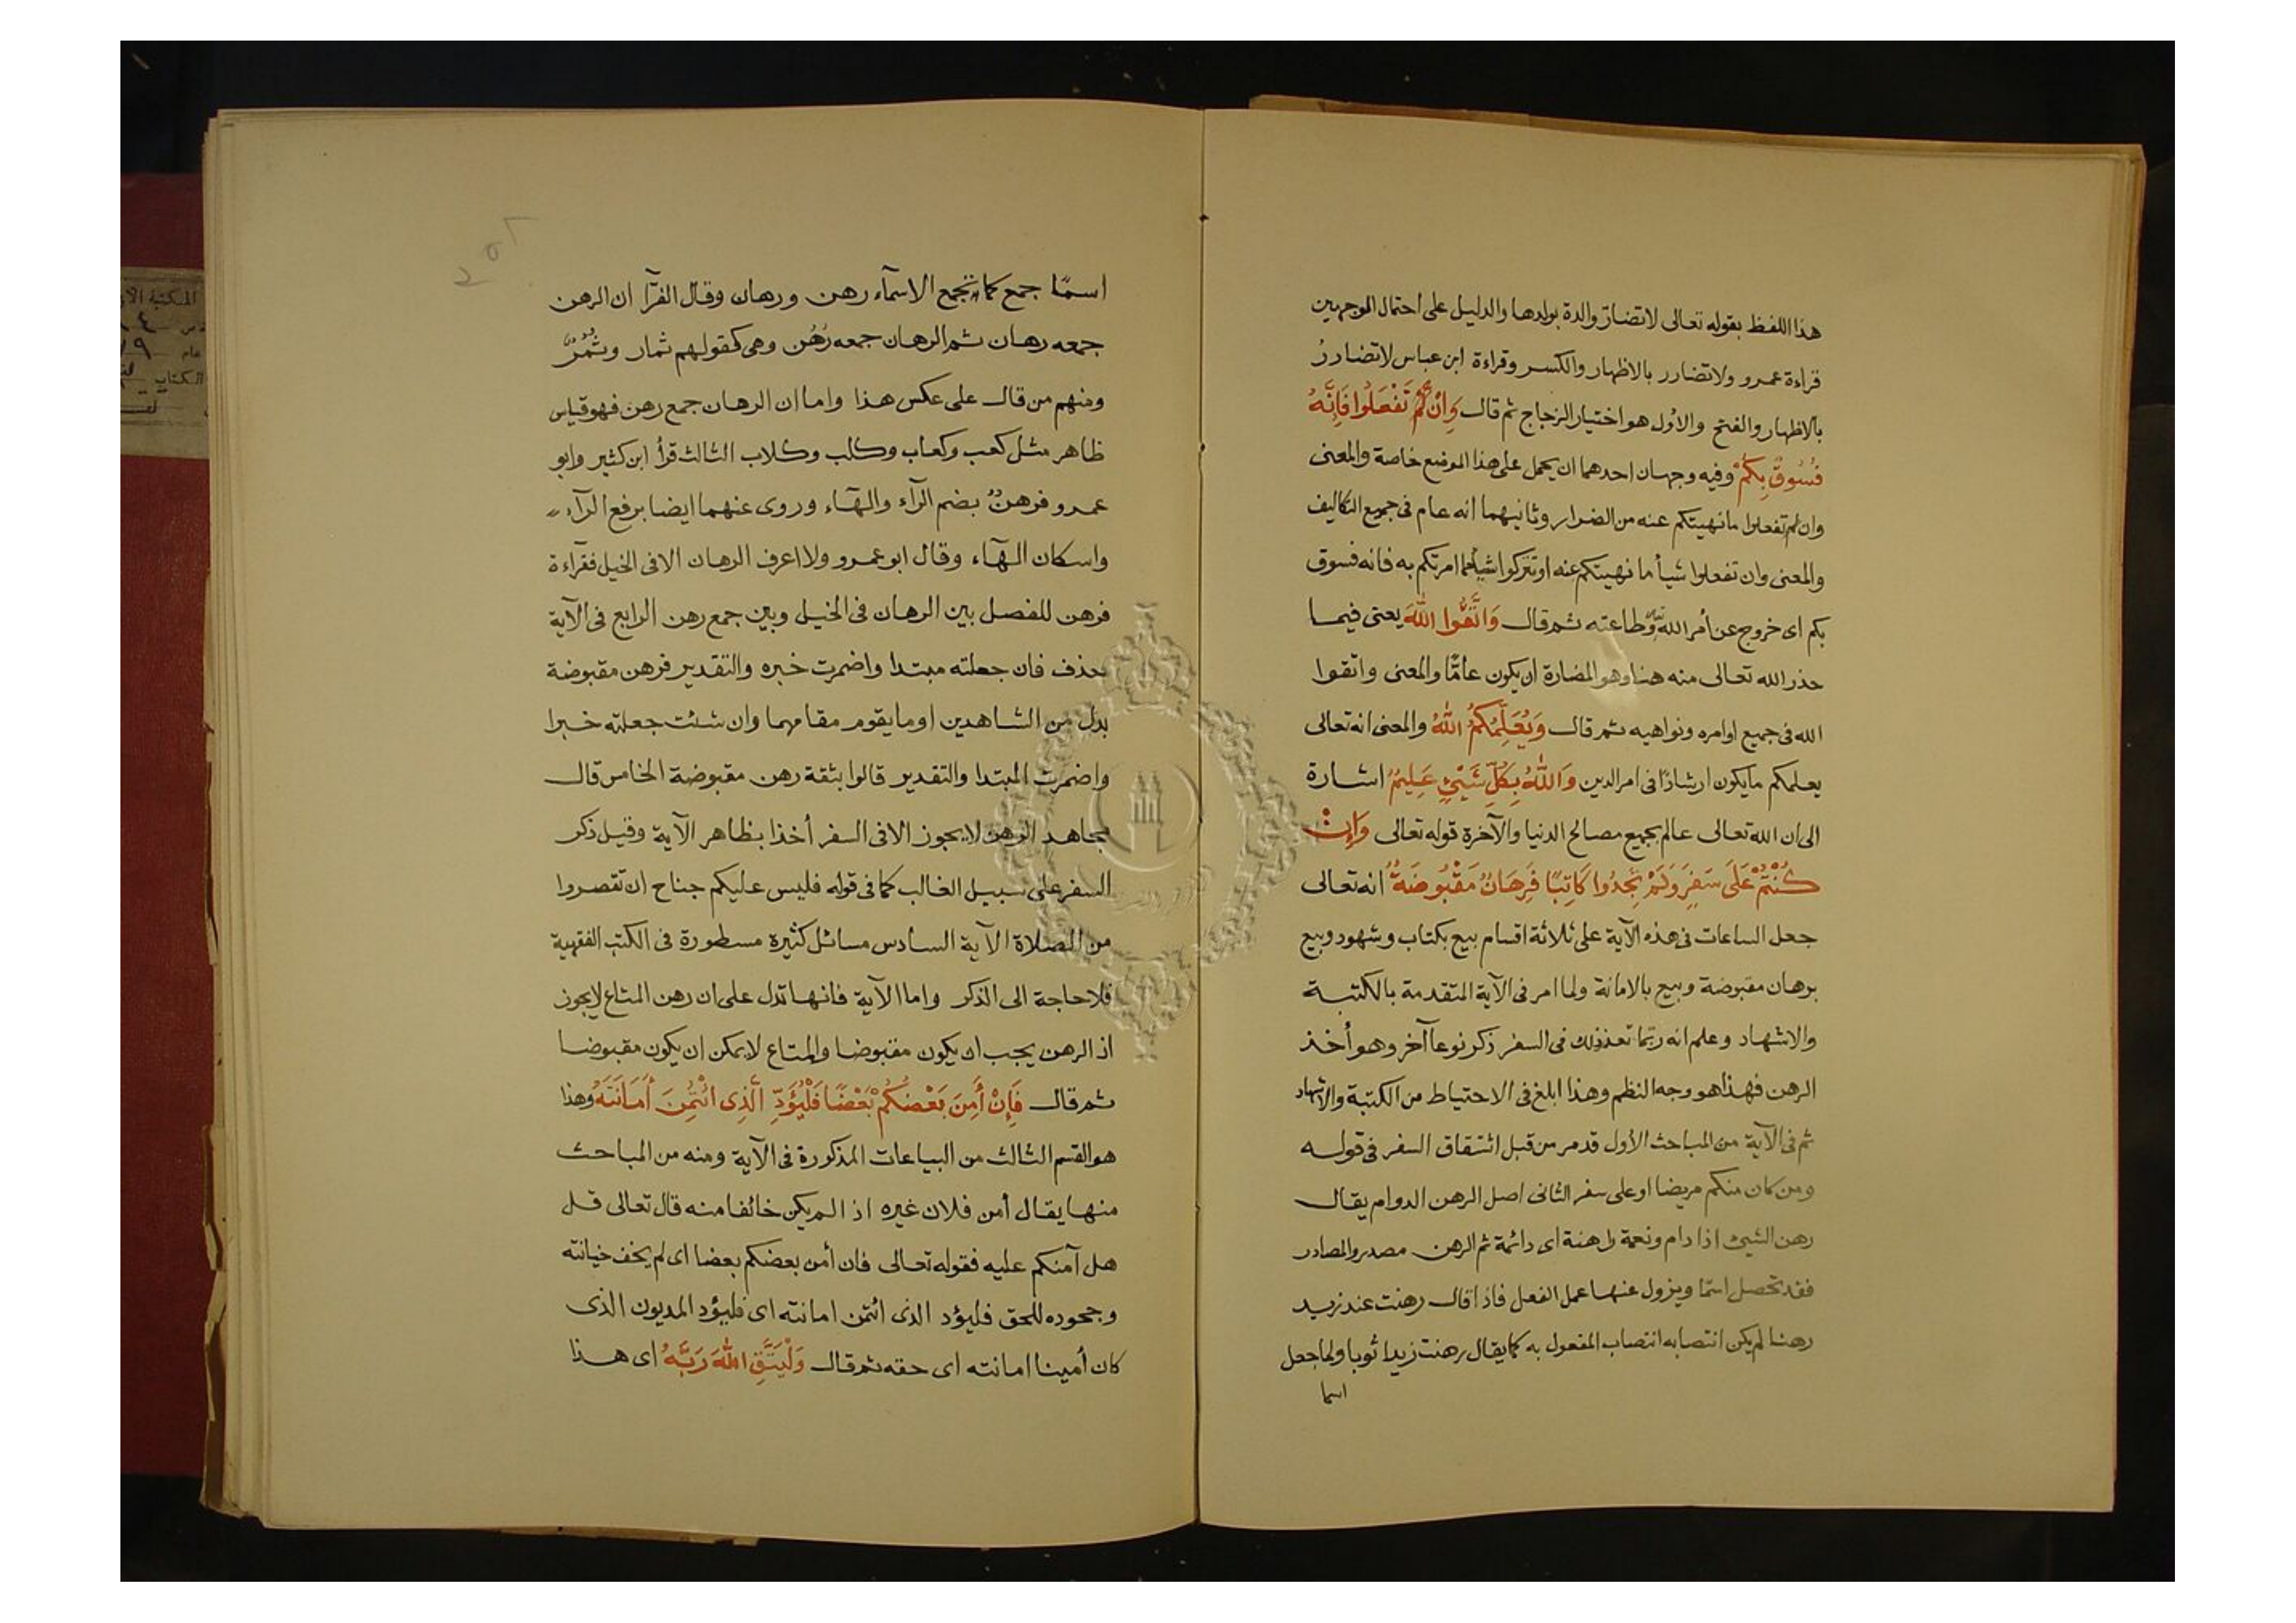 هذا اللفظ بقوله تعالى لا تضار والدة بولدها والدليل على احتمال الوجهين
قراءة عمرو ولا تضارر بالاظهار والكسر وقراءة ابن عباس لا تضاررُ
بالاظهار والفتح والاول هو اختيار الزجاج ثم قال وَاِنْ لَمْ تَفْعَلُوا فَاِنَّهُ
فُسُوقٌ بِكُمْ وفيه وجهان احدهما ان يحمل على هذا الموضع خاصة والمعنى
وان لم تفعلوا ما نهيتكم عنه من الضرار وثانيهما انه عام فى جميع التكاليف
والمعنى وان تفعلوا شيأ ما نهيتكم عنه او تتركوا شيأ مما امرتكم به فانه فسوق
بكم اى خروج عن أمر الله وطاعته ثم قال وَاتَّقُوا اللهَ يعنى فيما
حذر الله تعالى منه هنا وهو المضارة ان يكون عامًّا والمعنى واتقوا
الله فى جميع اوامره ونواهيه ثم قال وَيُعَلِّمُكُمُ اللهُ والمعنى انه تعالى
يعلمكم ما يكون ارشادًا فى امر الدين وَاللهُ بِكُلِّ شَيْئٍ عَلِيمٌ اشارة
الى ان الله تعالى عالم بجميع مصالح الدنيا والآخرة قوله تعالى وَاِنْ
كُنْتُمْ عَلَى سَفَرٍ وَلَمْ تَجِدُوا كَاتِبًا فَرِهَانٌ مَقْبُوضَةٌ انه تعالى
جعل الساعات فى هذه الآية على ثلاثة اقسام بيع بكتاب وشهود وبيع
برهان مقبوضة وبيع بالامانة ولما امر فى الآية المتقدمة بالكتبة
والاشهاد وعلم انه ربما تعذذلك فى السفر ذكر نوعا آخر وهو أخذ
الرهن فهذا هو وجه النظم وهذا ابلغ فى الاحتياط من الكتبة والاشهاد
ثم فى الآية من المباحث الأول قد مر من قبل اشتقاق السفر فى قوله
ومن كان منكم مريضا او على سفر الثانى اصل الرهن الدوام يقال
رهن الشيئ اذا دام ونعمة راهنة اى دائمة ثم الرهن مصدر والمصادر
فقد تحصل اسمًا ويزول عنها عمل الفعل فاذا قال رهنت عند زيد
رهنا لم يكن انتصابه انتصاب المفعول به كما يقال رهنت زيدا ثوبا ولما جعل
اسما
اسمًا جمع كما تجمع الاسمآء رهن ورهان وقال الفرّآ ان الرهن
جمعه رهان ثم الرهان جمعه رُهُن وهى كقولهم ثمار وثُمُرٌ
ومنهم من قال على عكس هذا واما ان الرهان جمع رهن فهو قياس
ظاهر مثل كعب وكعاب وكلب وكلاب الثالث قرأ ابن كثير وابو
عمرو فرهنٌ بضم الرآء والهآء وروى عنهما ايضا برفع الرآء
واسكان الهآء وقال ابو عمرو ولا اعرف الرهان الا فى الخيل فقرآءة
فرهن للفصل بين الرهان فى الخيل وبين جمع رهن الرابع فى الآية
حذف فان جعلته مبتدا واضمرت خبره والتقدير فرهن مقبوضة
بدل من الشاهدين او ما يقوم مقامهما وان شئت جعلته خبرا
واضمرت المبتدا والتقدير قالوا بثقة رهن مقبوضة الخامس قال
مجاهد الرهن لا يجوز الا فى السفر أخذا بظاهر الآية وقيل ذكر
السفر على سبيل الغالب كما فى قوله فليس عليكم جناح ان تقصروا
من الصلاة الآية السادس مسائل كثيرة مسطورة فى الكتب الفقهية
فلا حاجة الى الذكر واما الآية فانها تدل على ان رهن المتاع لا يجوز
اذ الرهن يجب ان يكون مقبوضا والمتاع لا يمكن ان يكون مقبوضا
ثم قال فَاِنْ أَمِنَ بَعْضُكُمْ بَعْضًا فَلْيُؤَدِّ الَّذِى ائْتُمِنَ أَمَانَتَهُ وهذا
هو القسم الثالث من البياعات المذكورة فى الآية ومنه من المباحث
منها يقال أمن فلان غيره اذا لم يكن خائفا منه قال تعالى قل
هل آمنكم عليه فقوله تعالى فان أمن بعضكم بعضا اى لم يخف خيانته
وجحوده للحق فليؤد الذى ائتمن امانته اى فليؤد المديون الذى
كان أمينا امانته اى حقه ثم قال وَلْيَتَّقِ اللهَ رَبَّهُ اى هذا